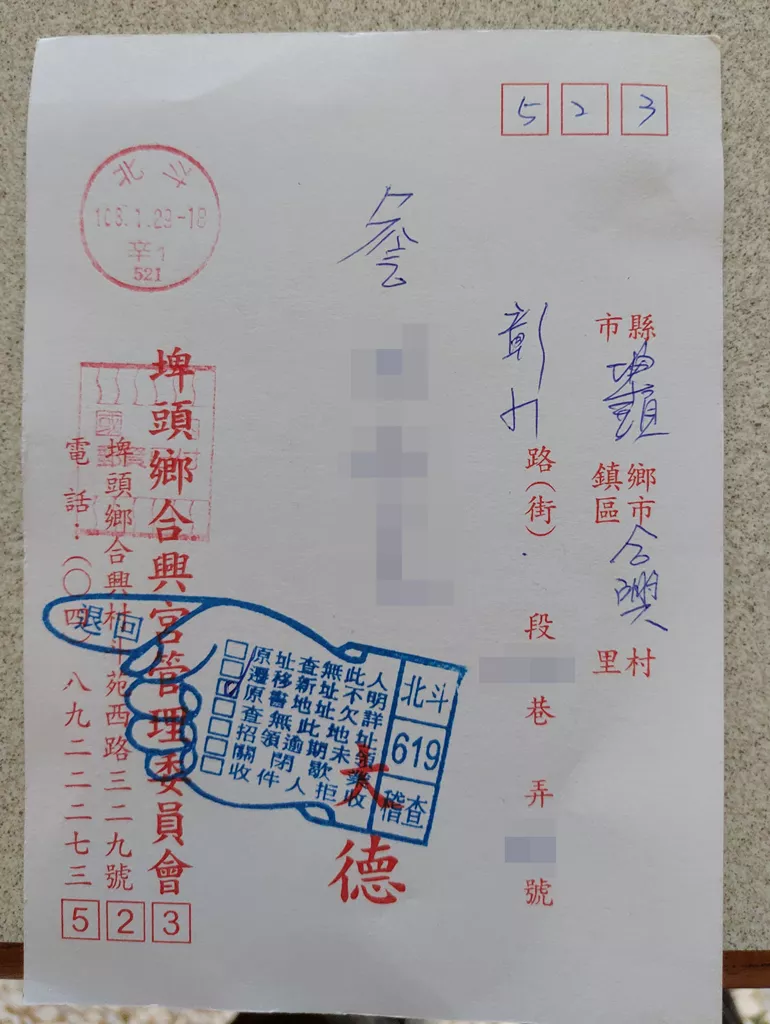 523
縣市 埤頭 鄉鎮市區 合興 村里
彰水路(街) 段 巷 弄 號
詹
大德
埤頭鄉合興宮管理委員會
埤頭鄉合興村斗苑西路三二九號
電話:(〇四)八九二二二七三
523
北斗
108.1.29-18
辛1
521
退回
原址查無此人
遷移新址不明
原書地址欠詳
查無此地址
招領逾期未領
關閉歇業
收件人拒收
北斗
619
稽查